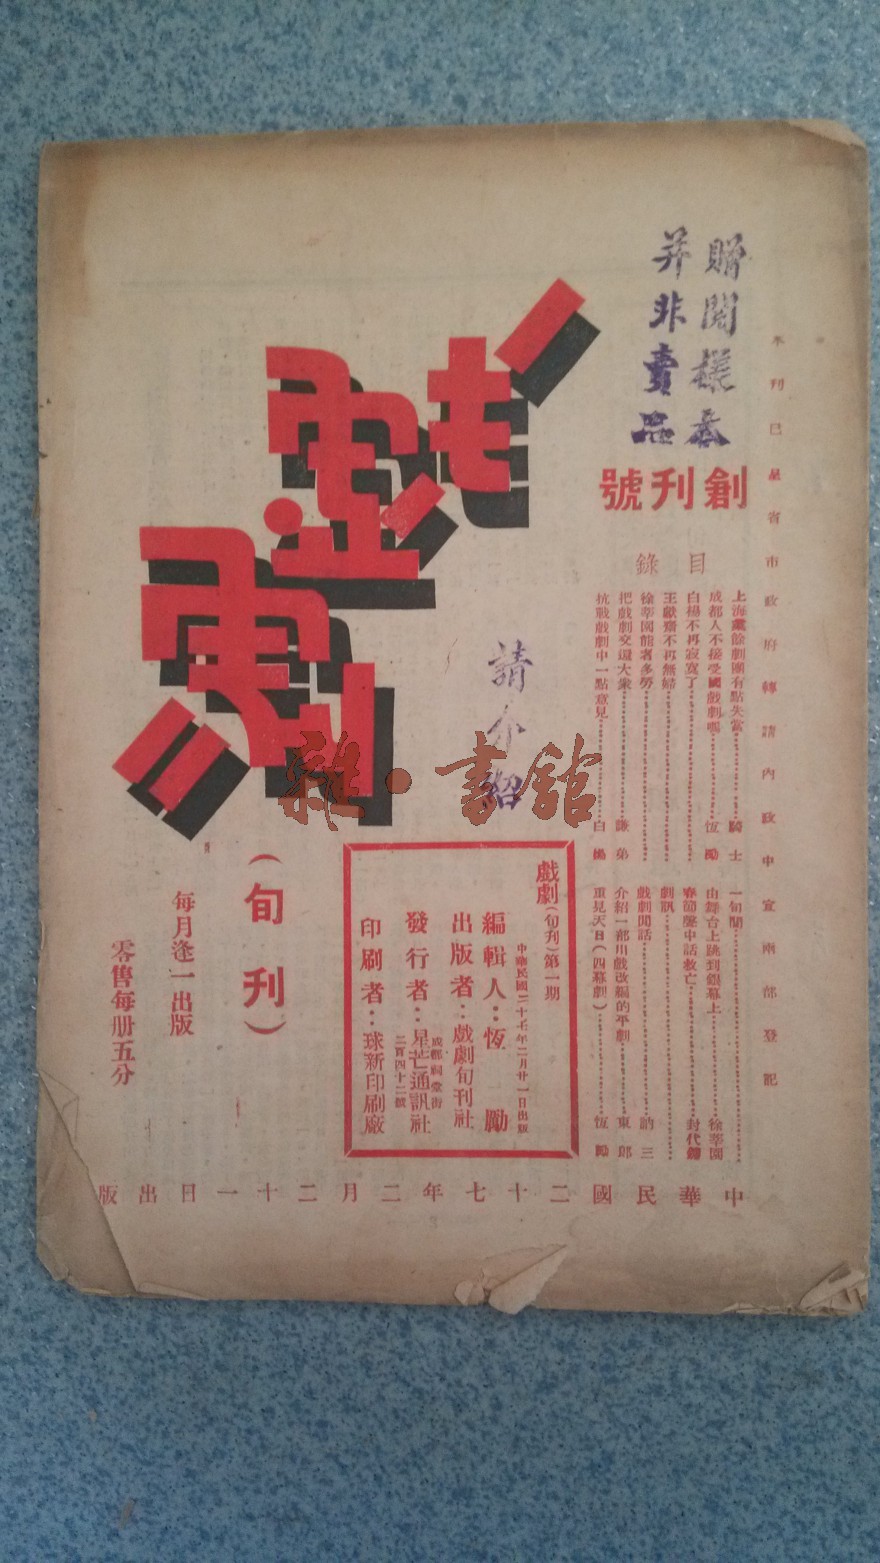 贈閱樣本
并非賣品
創刊號
本刊已呈省市政府轉請內政中宣兩部登記
目錄
上海業餘劇團有點失當……騎士
成都人不接受國戲劇嗎……恆勵
白楊不再寂寞了
王獻齋不再無婦
徐莘園能者多勞
把戲劇交還大衆……謙弟
抗戰戲劇中一點意見……白
一旬間
由舞台上跳到銀幕上……徐莘園
春節聲中話救亡……封代
劇訊
戲劇閒話……訥三
介紹一部川戲改編的平劇……東郎
重見天日(四幕劇)……恆勵
戲劇
請介紹
雜·書館
(旬刊)
每月逢一出版
零售每册五分
戲劇(旬刊)第一期
中華民國二十七年二月廿一日出版
編輯人:恆勵
出版者:戲劇旬刊社
發行者:星芒通訊社
成都祠堂街
二百四十二號
印刷者:球新印刷廠
中華民國二十七年二月二十一日出版